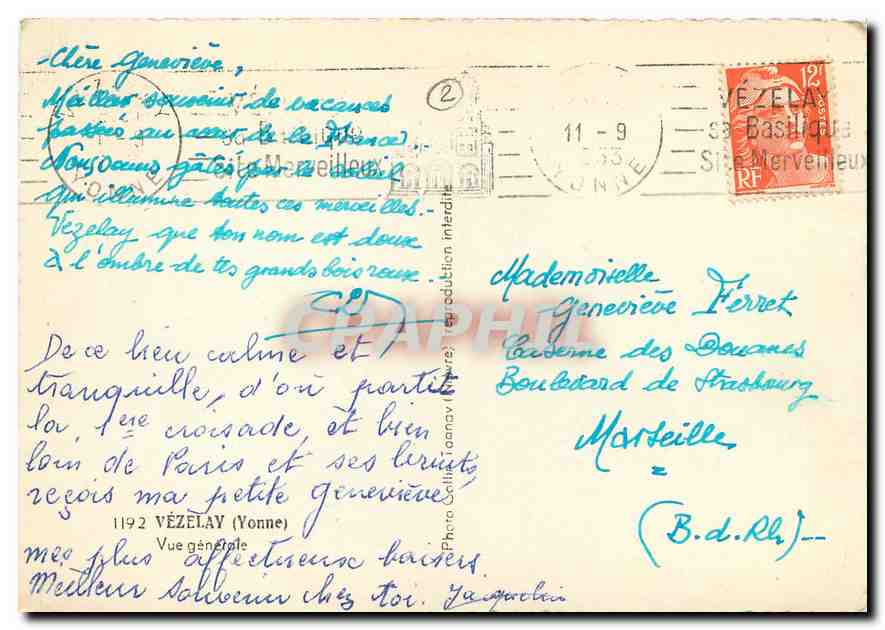 Chère Geneviève,
Meilleur souvenir de vacances
passées au cœur de la France...
Nous sommes gâtés par le soleil
qui illumine toutes ces merveilles.-
Vezelay que ton nom est doux
à l'ombre de tes grands bois roux.
De ce lieu calme et
tranquille, d'où partit
la 1ere croisade, et bien
loin de Paris et ses bruits,
reçois ma petite Geneviève
mes plus affectueux baisers
Meilleur souvenir chez toi. Jacquelin
1192 VÉZELAY (Yonne)
Vue générale
Photo Combier
reproduction interdite
2
VÉZELAY
sa Basilique
Site Merveilleux
11 - 9
YONNE
VÉZELAY
sa Basilique
Site Merveilleux
YONNE
12F
POSTES
RF
CPAPHIL
Mademoiselle
Geneviève Ferret
Caserne des Douanes
Boulevard de Strasbourg
Marseille
(B.d.Rh)--